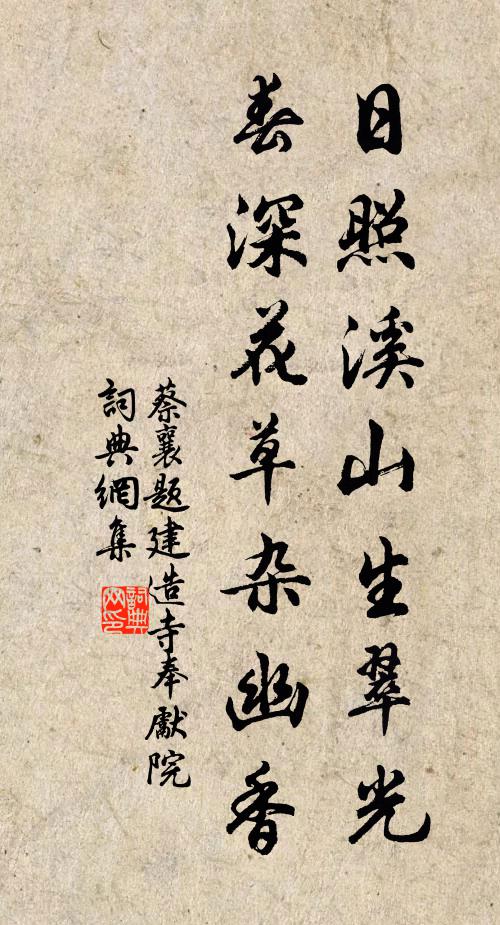 日照溪山生翠光
春深花草杂幽香
蔡襄题建造寺奉獻院
詞典網集
詞典网印